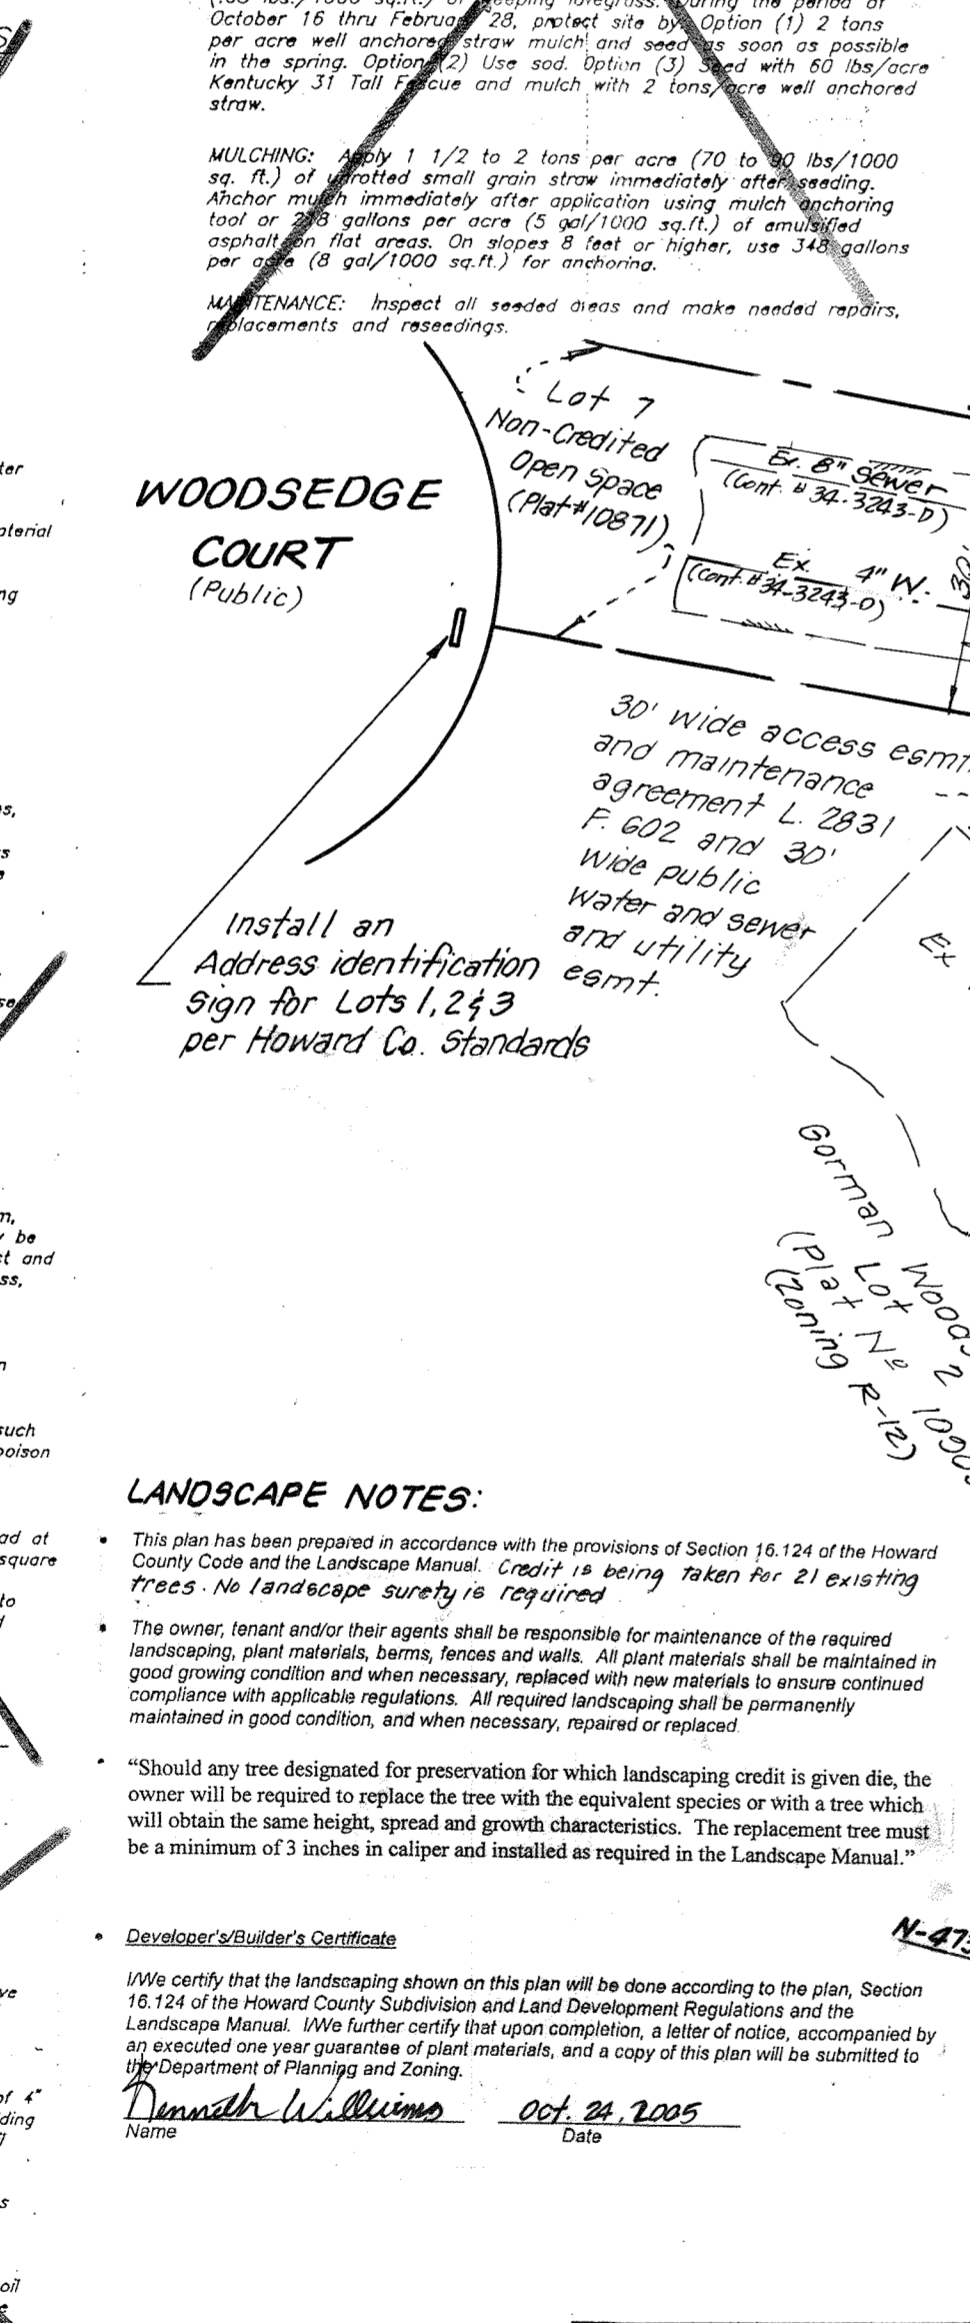 October 16 thru February 28, protect site by Option (1) 2 tons
per acre well anchored straw mulch and seed as soon as possible
in the spring. Option (2) Use sod. Option (3) Seed with 60 lbs/acre
Kentucky 31 Tall Fescue and mulch with 2 tons/acre well anchored
straw.
MULCHING: Apply 1 1/2 to 2 tons per acre (70 to 90 lbs/1000
sq. ft.) of unrotted small grain straw immediately after seeding.
Anchor mulch immediately after application using mulch anchoring
tool or 218 gallons per acre (5 gal/1000 sq.ft.) of emulsified
asphalt on flat areas. On slopes 8 feet or higher, use 348 gallons
per acre (8 gal/1000 sq.ft.) for anchoring.
MAINTENANCE: Inspect all seeded areas and make needed repairs,
replacements and reseedings.
Lot 7
Non-Credited
Open Space
(Plat #10871)
Ex. 8" Sewer
(Cont. #34-3243-D)
Ex. 4" W.
(Cont. #34-3243-D)
30
WOODSEDGE
COURT
(Public)
30' wide access esmt.
and maintenance
agreement L. 2831
F. 602 and 30'
wide public
water and sewer
and utility
esmt.
Ex
Install an
Address identification
Sign for Lots 1, 2 & 3
per Howard Co. Standards
Gorman Woods
Lot 2
(Plat Nº
(Zoning R-12)
ter
aterial
ng
s,
s
m,
be
t and
ss,
n
such
poison
ad at
square
to
ve
of 4"
ding
s
oil
LANDSCAPE NOTES:
• This plan has been prepared in accordance with the provisions of Section 16.124 of the Howard
County Code and the Landscape Manual. Credit is being taken for 21 existing
trees. No landscape surety is required
• The owner, tenant and/or their agents shall be responsible for maintenance of the required
landscaping, plant materials, berms, fences and walls. All plant materials shall be maintained in
good growing condition and when necessary, replaced with new materials to ensure continued
compliance with applicable regulations. All required landscaping shall be permanently
maintained in good condition, and when necessary, repaired or replaced.
• “Should any tree designated for preservation for which landscaping credit is given die, the
owner will be required to replace the tree with the equivalent species or with a tree which
will obtain the same height, spread and growth characteristics. The replacement tree must
be a minimum of 3 inches in caliper and installed as required in the Landscape Manual.”
N-473
• Developer's/Builder's Certificate
I/We certify that the landscaping shown on this plan will be done according to the plan, Section
16.124 of the Howard County Subdivision and Land Development Regulations and the
Landscape Manual. I/We further certify that upon completion, a letter of notice, accompanied by
an executed one year guarantee of plant materials, and a copy of this plan will be submitted to
the Department of Planning and Zoning.
Kenneth Williams Oct. 24, 2005
Name Date